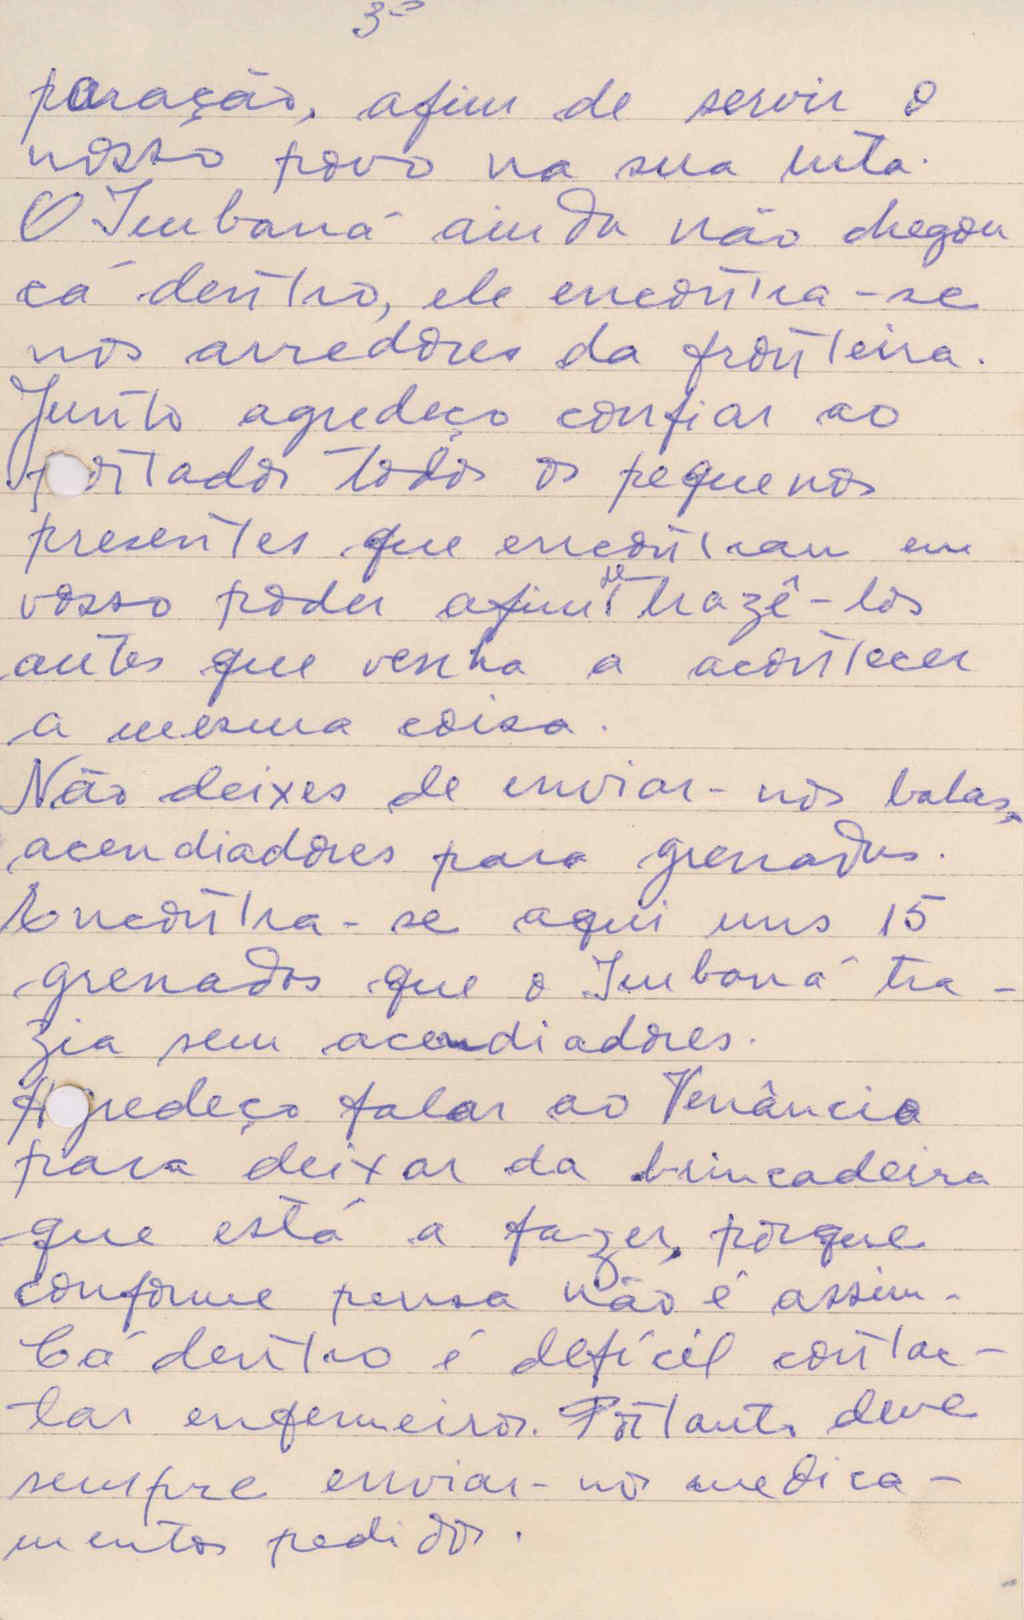 3º
paração, afim de servir o
nosso povo na sua luta.
O Imbaná ainda não chegou
cá dentro, ele encontra-se
nos arredores da fronteira.
Junto agredeço confiar ao
portador todos os pequenos
presentes que encontram em
vosso poder afim de trazê-los
antes que venha a acontecer
a mesma coisa.
Não deixes de enviar-nos balas,
acendiadores para grenadas.
Encontra-se aqui uns 15
grenados que o Imbaná tra-
zia sem acendiadores.
Agredeço falar ao Venâncio
para deixar da brincadeira
que está a fazer, porque
conforme pensa não é assim.
Cá dentro é defícil contac-
tar enfermeiros. Portanto deve
sempre enviar-nos medica-
mentos pedidos.